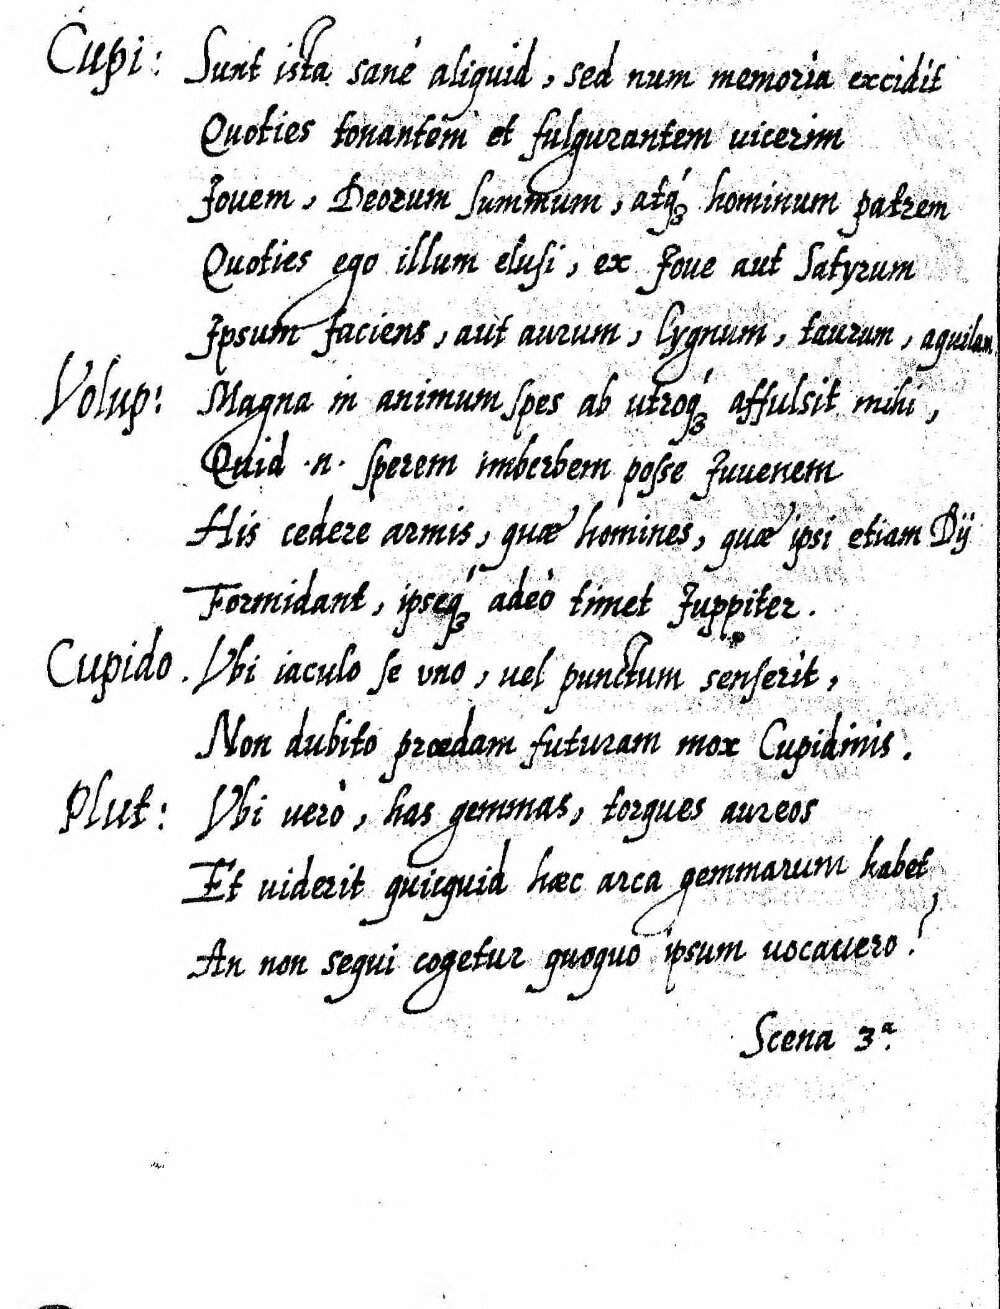 Cupi: Sunt ista sanè aliquid, sed num memoria excidit
Quoties tonantem et fulgurantem uicerim
Jouem, Deorum summum, atq́ꝫ hominum patrem
Quoties ego illum elusi, ex Joue aut Satyrum
Ipsum faciens, aut aurum, Cygnum, taurum, aquilam
Volup: Magna in animum spes ab utroq́ꝫ affulsit mihi,
Quid ·n· sperem imberbem posse Juuenem
His cedere armis, quæ homines, quæ ipsi etiam Dij
Formidant, ipseq́ꝫ adeò timet Juppiter.
Cupido. Vbi iaculo se vno, uel punctum senserit,
Non dubito prædam futuram mox Cupidinis.
Plut: Vbi uerò, has gemmas, torques aureos
Et uiderit quicquid hæc arca gemmarum habet
An non sequi cogetur quoquo ipsum uocauero?
Scena 3ª.